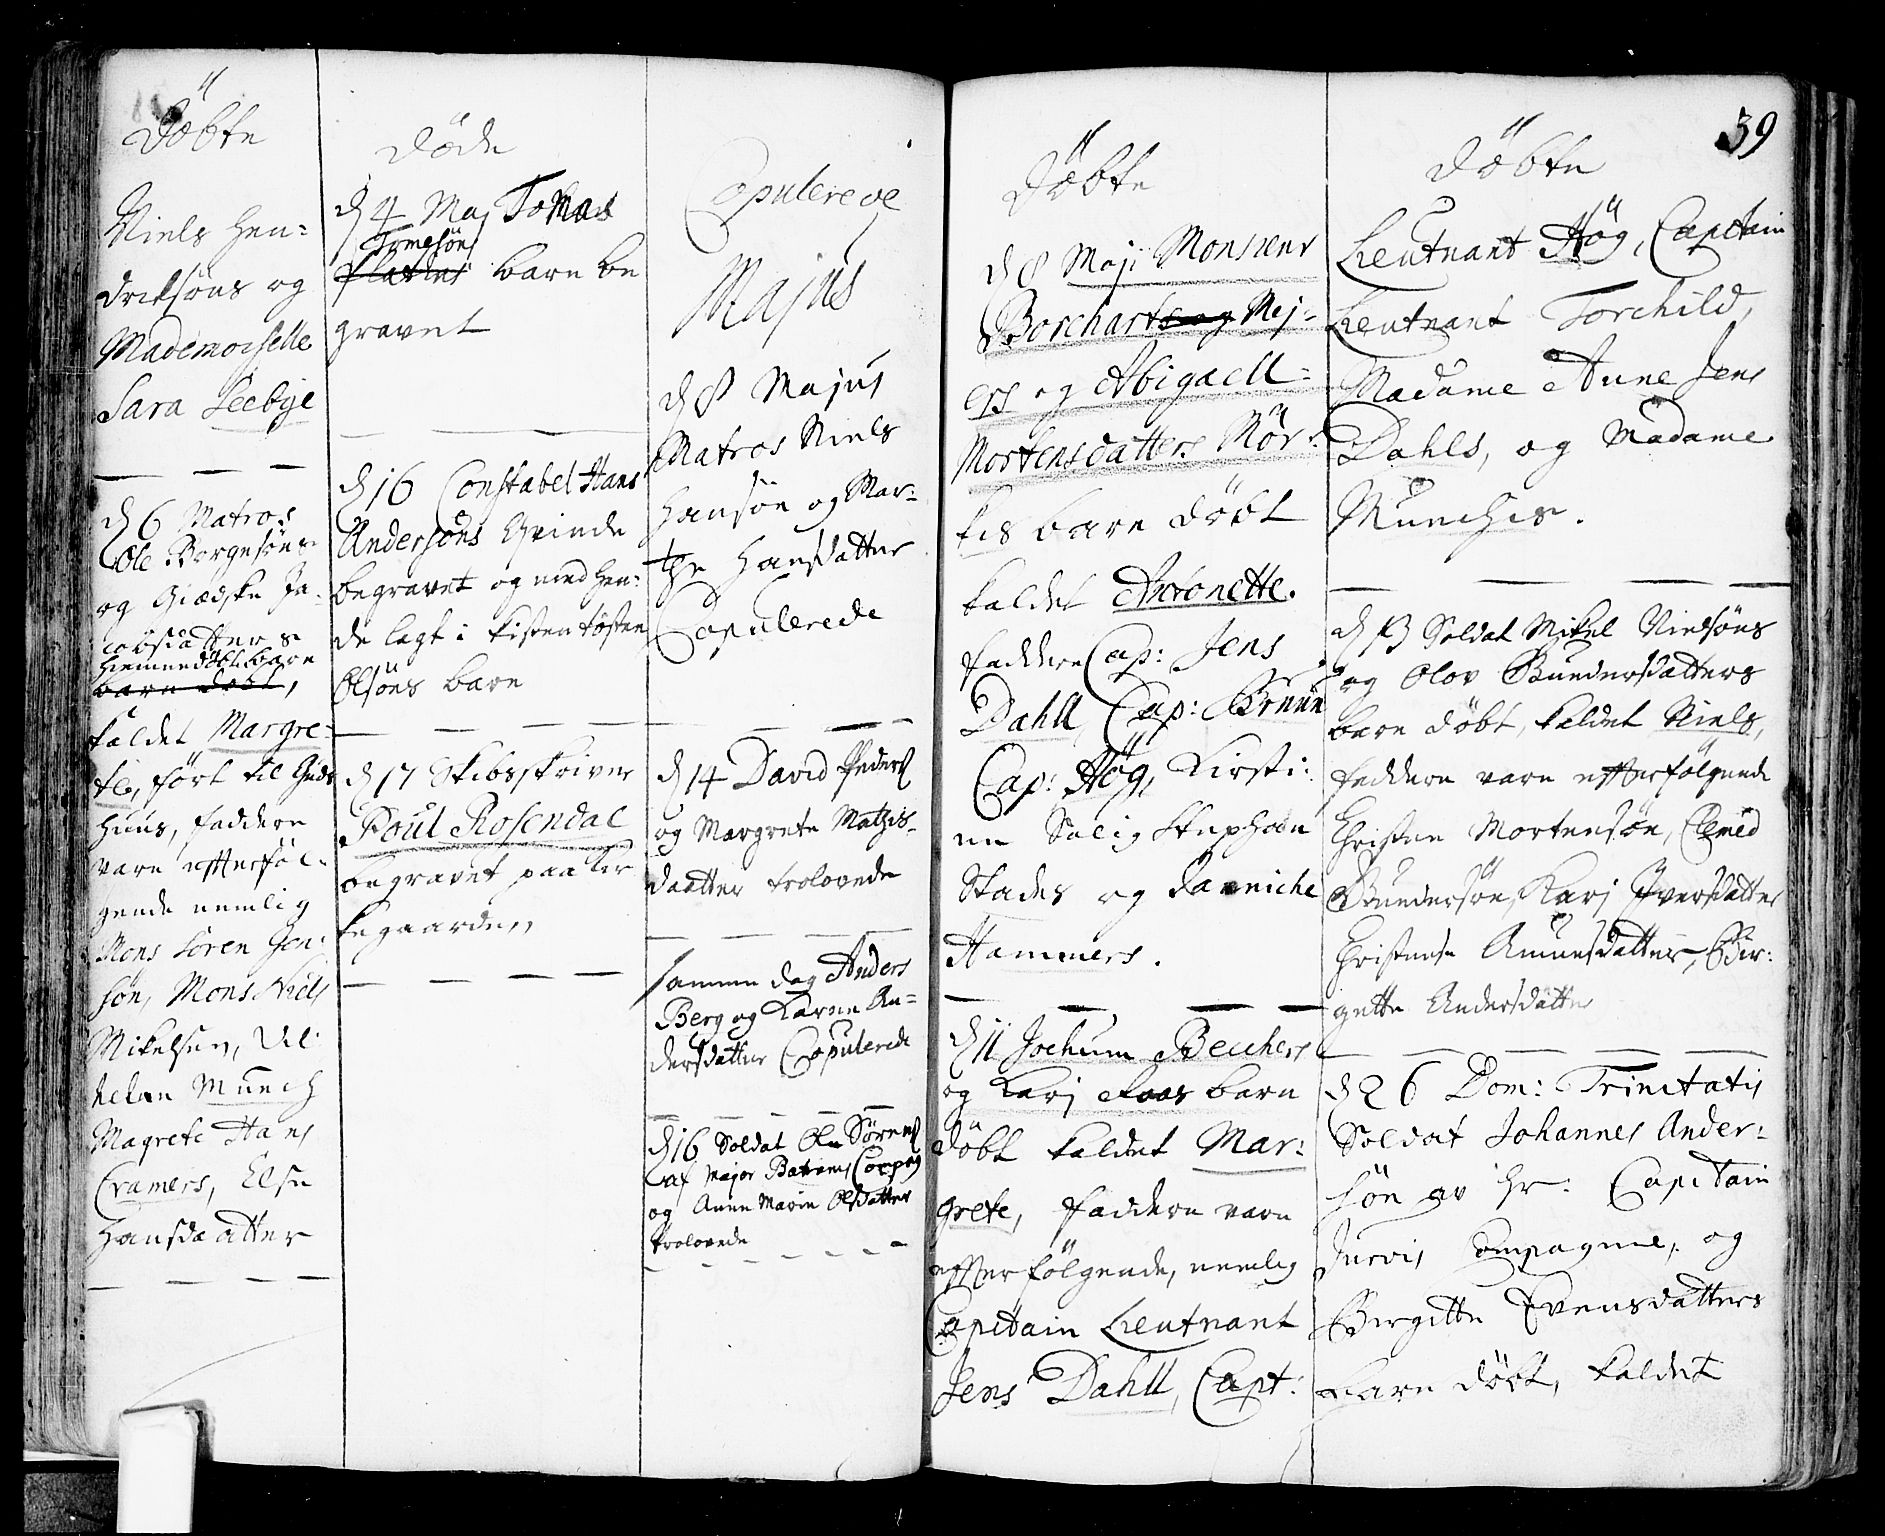 Døbte
Niels Hen-
dricksøns og
Mademoiselle
Sara Seebye
d 6 Matros
Ole Borgesøns
og Giædske Ja-
cobsdatters
hiemmedøbt barn
barn døbt,
kaldet Margre-
te, ført til Guds
Huus, faddere
vare efterføl-
gende nemlig
Mons Søren Jen-
søn, Mons Niels
Mikelsen,
Munch
Magrete Hans
Cramers, Else
Hansdaatter
Døde
d 4 Maj Tomas
Tomesøns
barn be
gravet
d 16 Constabel Hans
Andersøns Qvinde
begravet og med hen-
de lagt i kisten Tosten
Olsøns barn
d 17 Skibsskriver
Poul Rosendal
begravet paa Kir
kegaarden
Copulerede
Majus
d 8 Majus
Matros Niels
Hansøn og Mar-
the Hansdatter
Copulerede
d 14 David Peders
og Margrete Mathis-
daatter trolovede
samme dag Anders
Berg og Karen An-
dersdatter Copulerede
d 16 Soldat Ole Sørens
af Major Comp og
og Anne Marie Olsdatter
trolovede
Døbte
d 8 Maji Monsieur
Borchart og Mej-
ers og Abigaell
Mortensdatters Mør-
kis barn døbt
kaldet Antonette.
faddere Cap: Jens
Dahll, Cap: Bruun
Cap: Høg, Kirsti-
ne Salig Stephan
Stades og Danniche
Hammers.
d 11 Jochum Beckers
og Karj Roas barn
døbt kaldet Mar-
grete, faddere vare
efterfølgende, nemlig
Capitain Lieutnant
Jens Dahll, Capt:
39
Døbte
Lieutnant Høg, Capitain
Lieutnant Torchild,
Madame Anne Jens
Dahls, og Madame
Munchs.
d 13 Soldat Mikel Nielsøns
og Olov Gundersdatters
barn døbt, kaldet Niels,
faddere vare efterfølgende
Christen Mortensøn,
Gundersøn, Karj Iversdatter
Christense Amunsdatter, Bir-
gette Andersdatter
d 26 Dom: Trinitatis
Soldat Johannes Ander-
søn av Hr: Capitain
Jurvis Compagnie, og
Birgitte Evensdatters
barn døbt, kaldet